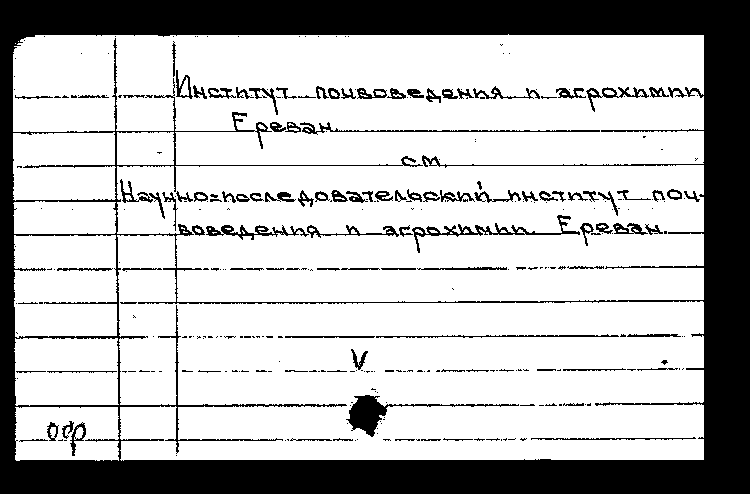 Институт почвоведения и агрохимии
Ереван.
см.
Научно=исследовательский институт поч-
воведения и агрохимии. Ереван.
V